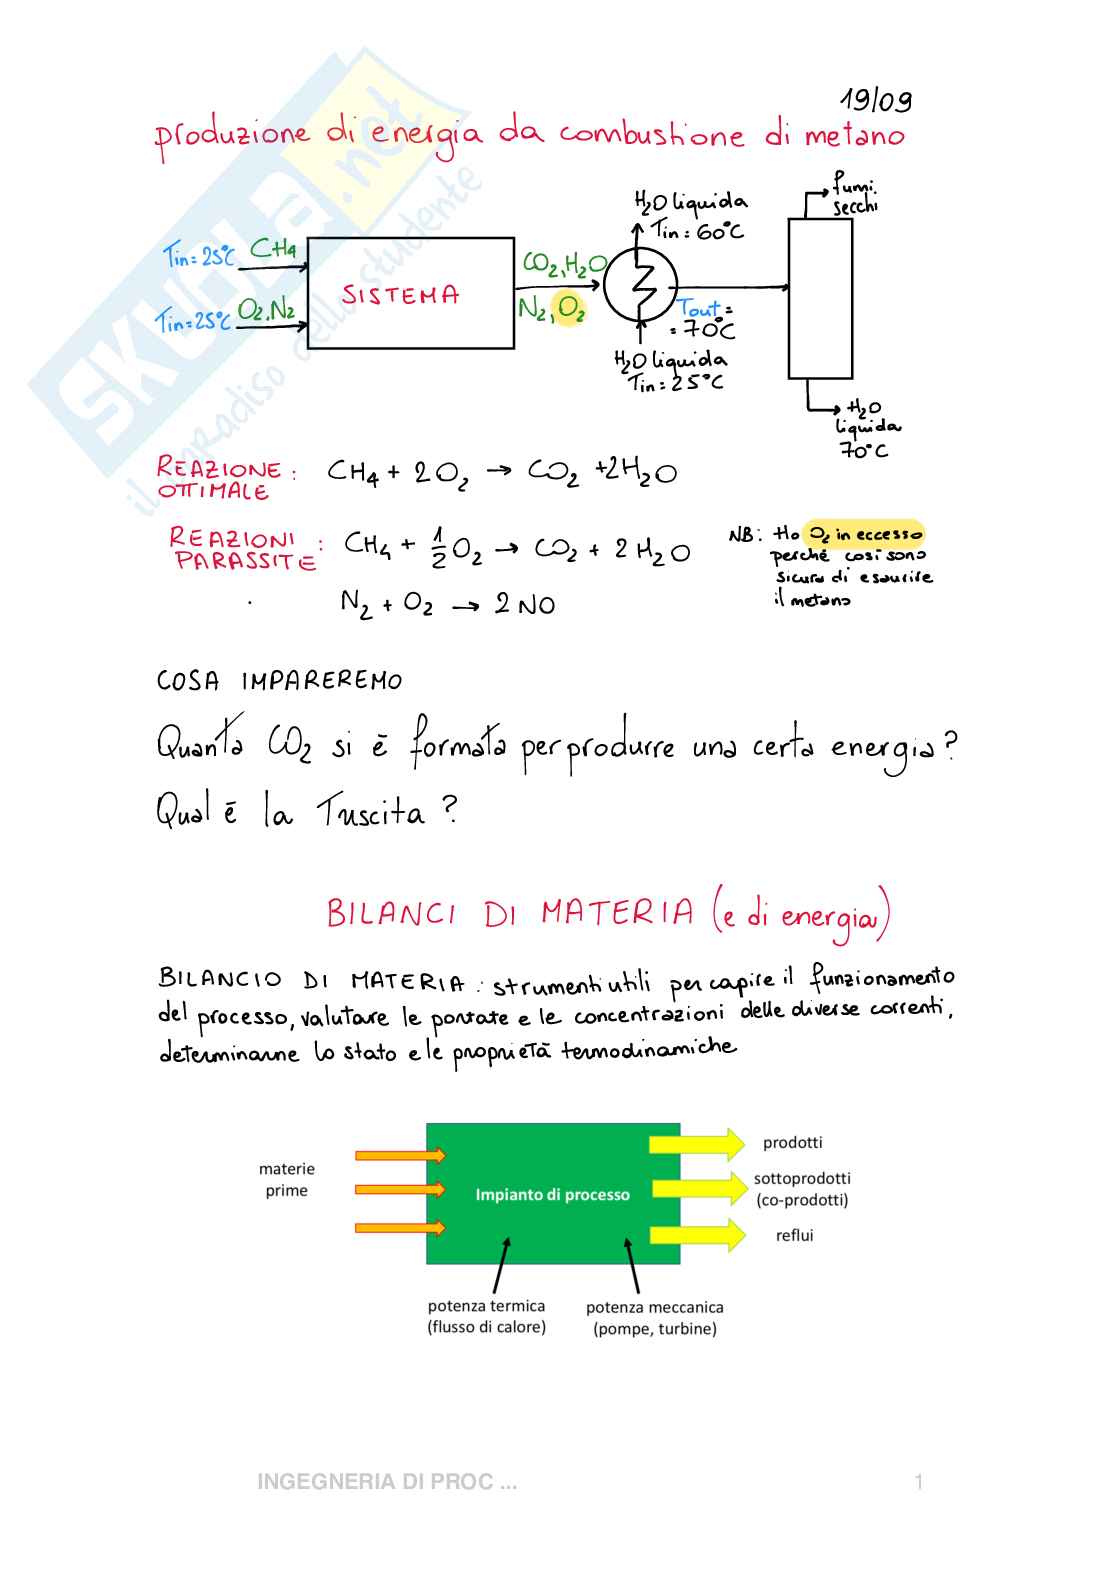 19/09
produzione di energia da combustione di metano
SKUOLA.net
il paradiso dello studente
Tin= 25°C CH4
Tin= 25°C O2,N2
SISTEMA
CO2,H2O
N2,O2
H2O liquida
Tin= 60°C
Tout =
= 70°C
H2O liquida
Tin= 25°C
fumi
secchi
H2O
liquida
70°C
REAZIONE : CH4 + 2O2 → CO2 +2H2O
OTTIMALE
REAZIONI : CH4 + 1/2 O2 → CO2 + 2H2O
PARASSITE
N2 + O2 → 2NO
NB: Ho O2 in eccesso
perché così sono
sicura di esaurire
il metano
COSA IMPAREREMO
Quanta CO2 si è formata per produrre una certa energia?
Qual è la Tuscita?
BILANCI DI MATERIA (e di energia)
BILANCIO DI MATERIA: strumenti utili per capire il funzionamento
del processo, valutare le portate e le concentrazioni delle diverse correnti,
determinarne lo stato e le proprietà termodinamiche
materie
prime
Impianto di processo
prodotti
sottoprodotti
(co-prodotti)
reflui
potenza termica
(flusso di calore)
potenza meccanica
(pompe, turbine)
INGEGNERIA DI PROC ... 1